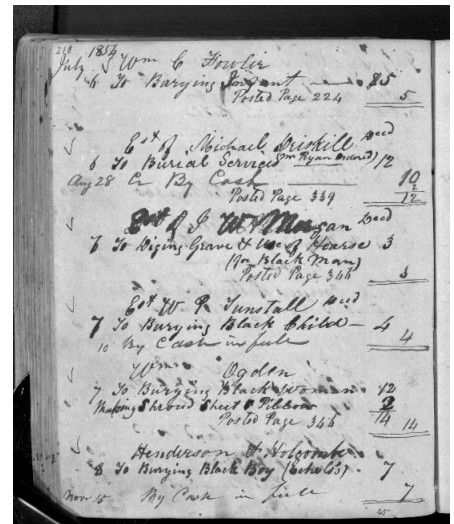 210 1854
July Wm C Fowler
6 To Burying Infant $5
Posted Page 224 5
Est of Michael Driskill Decd
6 To Burial Services (Mr Ryan ordered) 12
Aug 28 Cr By Cash 10
2
Posted Page 339 12
Est of J W Morgan Decd
6 To Diging Grave & Use of Hearse 3
(for Black Man)
Posted Page 346 3
Est W P Tunstall Decd
7 To Burying Black Child 4
10 By Cash in full 4
Wm Ogden
7 To Burying Black Woman 12
Making Shroud Sheet & Pillow 2
14
Posted Page 344 14
Henderson & Holcombe
8 To Burying Black Boy (Echols) 7
Nov 15 By Cash in full 7
45